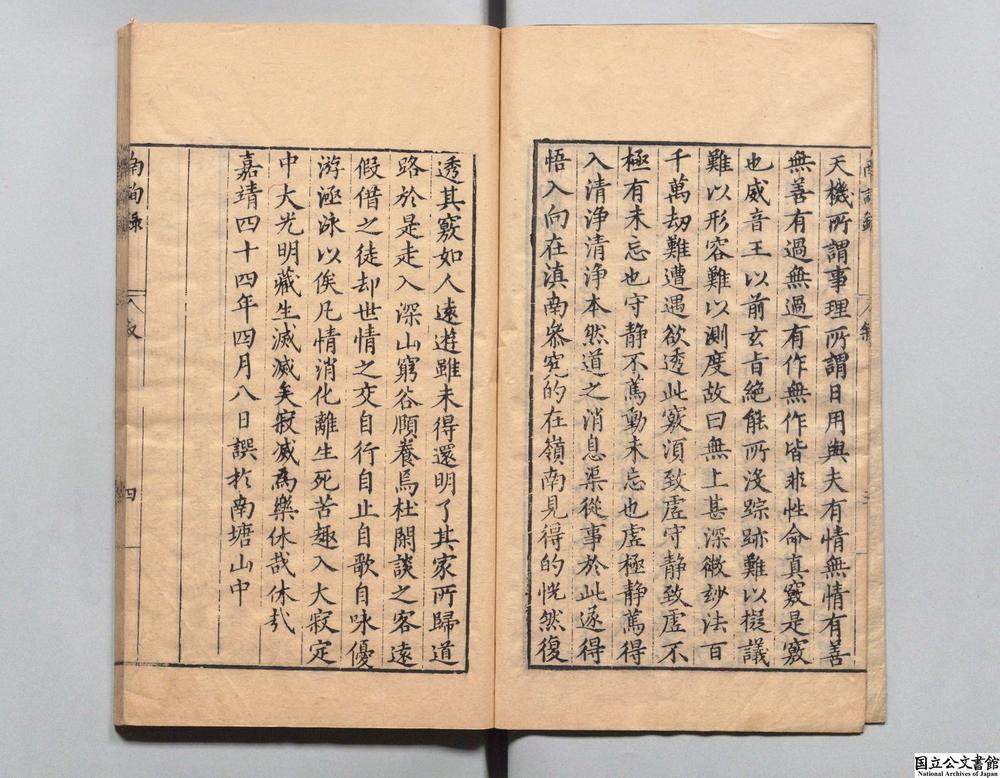 天機所謂事理所謂日用與夫有情無情有善
無善有過無過有作無作皆非性命真竅是竅
也威音王以前玄旨絶能所沒踪跡難以擬議
難以形容難以測度故曰無上甚深微玅法百
千萬劫難遭遇欲透此竅湏致虗守静致虗不
極有未忘也守静不篤動未忘也虗極静篤得
入清浄清浄本然道之消息渠從事於此遂得
悟入向在滇南叅究的在嶺南見得的恍然復
透其竅如人遠遊雖未得還明了其家所歸道
路於是走入深山窮谷頤養焉杜閑談之客遠
假借之徒却世情之交自行自止自歌自咏優
游涵泳以俟凡情消化離生死苦趣入大寂定
中大光明藏生滅滅矣寂滅爲樂休哉休哉
嘉靖四十四年四月八日譔於南塘山中
南詢錄
四
南詢錄
國立公文書館
National Archives of Japan